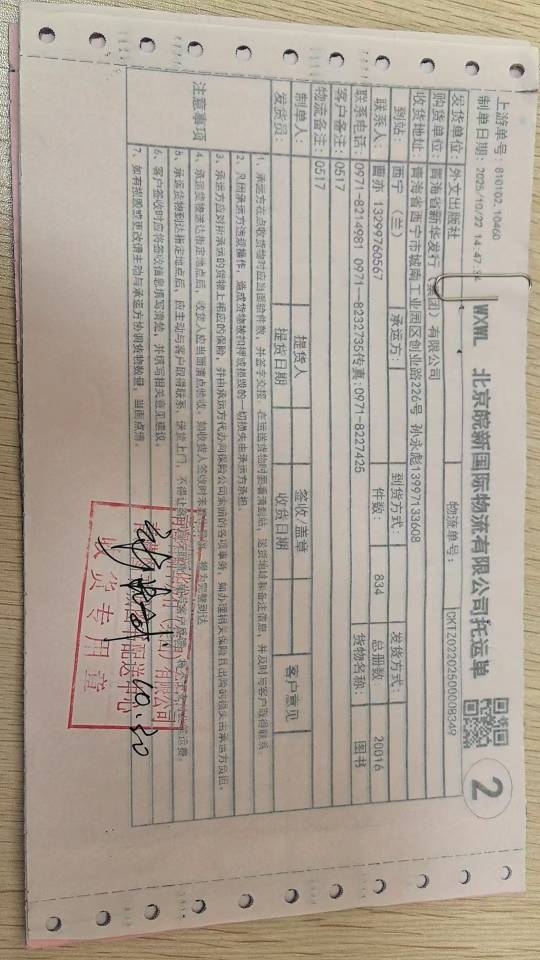 上游单号: 8101102, 10460
制单日期: 2025/10/22 14:47:34
WXWL 北京皖新国际物流有限公司托运单
2
发货单位: 外文出版社 物流单号: DKTZ02202500008349
购货单位: 青海省新华发行(集团)有限公司
收货地址: 青海省西宁市城南工业园区创业路226号 孙永彪13997133608
到站: 西宁 (兰) 承运方: 到货方式: 发货方式:
联系人: 曹亦 13299760567 件数: 834 总册数: 20016
联系电话: 0971-8214981 0971-8232735传真:0971-8227425 货物名称: 图书
客户备注: 0517
物流备注: 0517
制单人: 提货人 签收/盖章 客户意见
发货员: 提货日期 收货日期
注意事项
1、承运方在点收货物时应当面验件数，并签字交接。在运送货物时要看清到站、送货地址和备注信息，并及时与客户取得联系。
2、凡因承运方违规操作，造成货物被扣押或损毁的一切损失由承运方承担。
3、承运方应对所承运的货物上相应的保险，并由承运方代办向保险公司索赔的各项事务，如办理相关保险且出险的损失由承运方负责。
4、承运货物送达指定地点后，收货人应当面清点验收，如收货人签收时未
5、承运货物到达指定地点后，应主动与客户取得联系，送货上门，不得让 运费。
6、客户签收时应将签收信息填写清楚，并填写相关意见建议。
7、如有损毁或更改请主动与承运方协调货物数量，当面点清。
有限公司
配送中心
收货专用章
10.30